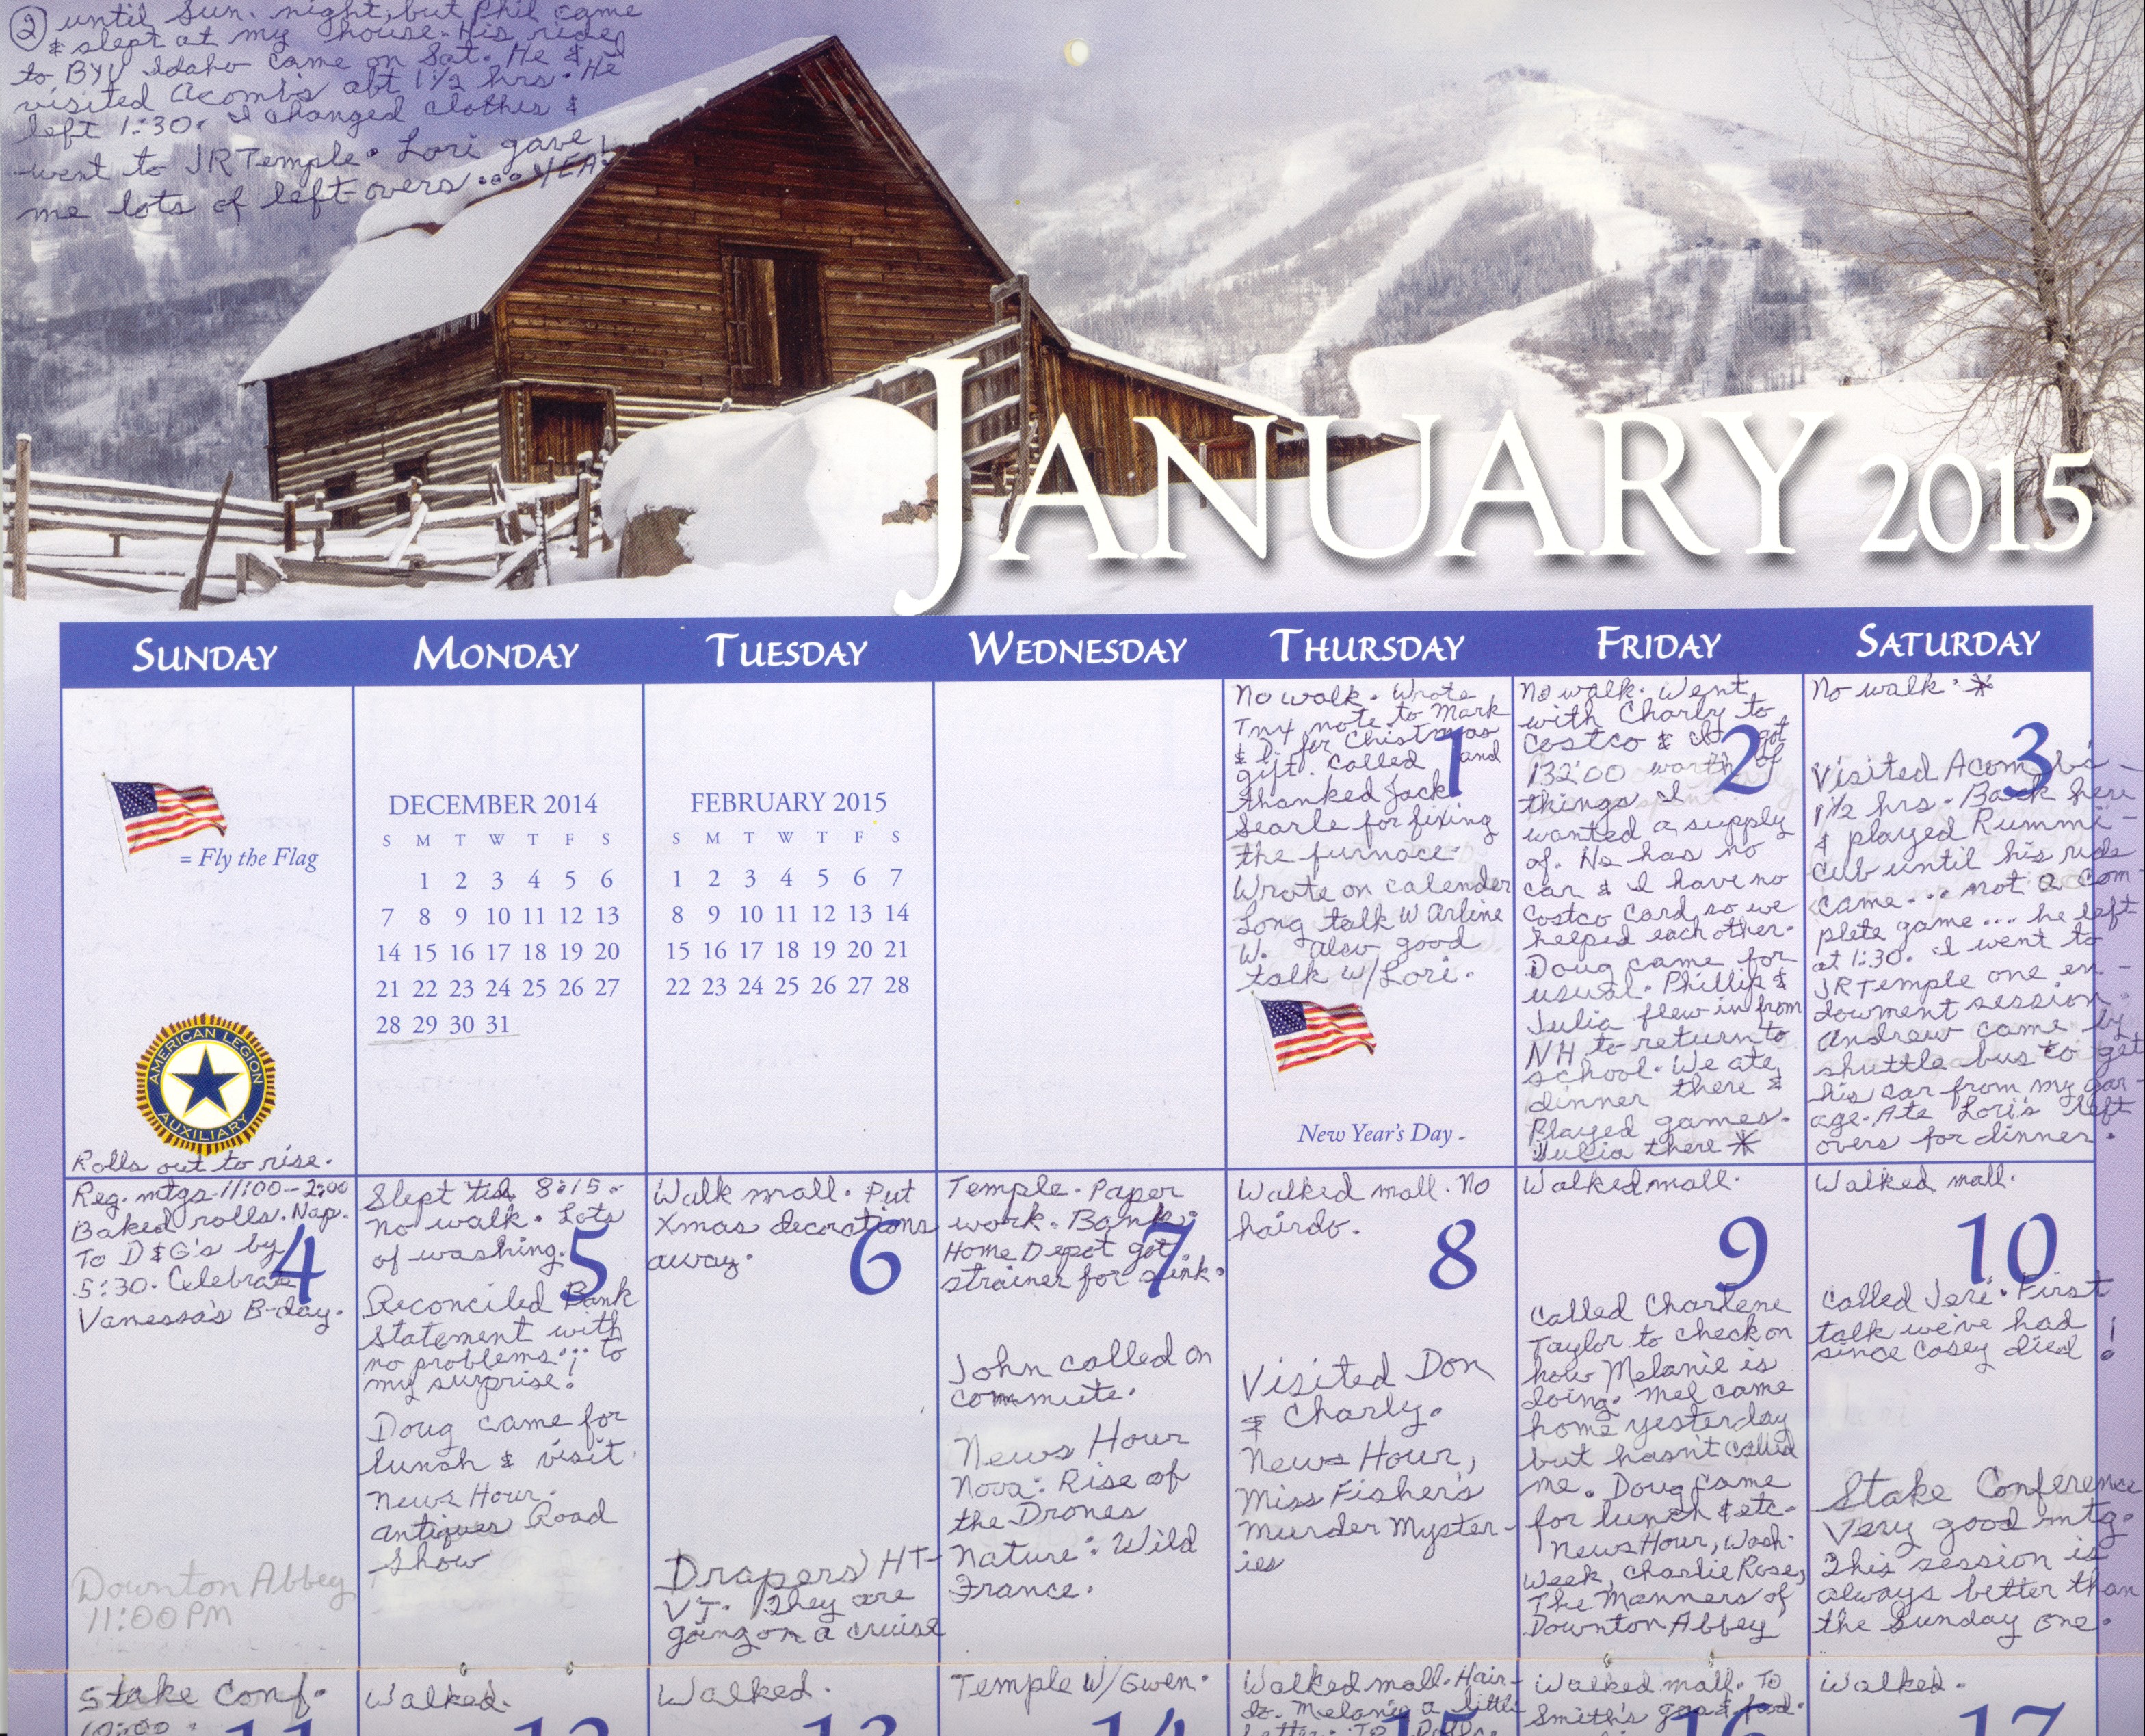 ② until Sun. night, but Phil came
& slept at my house. His ride
to BYU Idaho came on Sat. He & I
visited Acomb's abt 1½ hrs. He
left 1:30. I changed clothes &
went to JR Temple. Lori gave
me lots of left-overs ... YEA!
JANUARY 2015
SUNDAY
MONDAY
TUESDAY
WEDNESDAY
THURSDAY
FRIDAY
SATURDAY
= Fly the Flag
AMERICAN LEGION
AUXILIARY
Rolls out to rise.
DECEMBER 2014
S M T W T F S
1 2 3 4 5 6
7 8 9 10 11 12 13
14 15 16 17 18 19 20
21 22 23 24 25 26 27
28 29 30 31
FEBRUARY 2015
S M T W T F S
1 2 3 4 5 6 7
8 9 10 11 12 13 14
15 16 17 18 19 20 21
22 23 24 25 26 27 28
1
No walk. Wrote
Tnx note to Mark
& D. for Chistmas
gift. Called and
thanked Jack
Searle for fixing
the furnace.
Wrote on calender
Long talk W Arline
W. also good
talk w/Lori.
New Year's Day -
2
No walk. Went
with Charly to
Costco & I got
132.00 worth of
things I
wanted a supply
of. He has no
car & I have no
Costco Card, so we
helped each other.
Doug came for
usual. Phillip &
Julia flew in from
NH to return to
school. We ate
dinner there &
Played games.
Julia there *
3
No walk. *
Visited Acomb's -
1½ hrs. Back here
& played Rummi-
Cub until his ride
came... not a com-
plete game ... he left
at 1:30. I went to
JR Temple one en-
dowment session.
Andrew came by
shuttle bus to get
his car from my gar-
age. Ate Lori's left
overs for dinner.
4
Reg. mtgs 11:00-2:00
Baked rolls. Nap.
To D&G's by
5:30. Celebrate
Vanessa's B-day.
Downton Abbey
11:00 PM
5
Slept til 8:15.
no walk. Lots
of washing.
Reconciled Bank
statement with
no problems... to
my surprise!
Doug came for
lunch & visit.
News Hour.
Antiques Road
Show
6
Walk mall. Put
Xmas decorations
away.
Drapers' HT-
VT. They are
going on a cruise
7
Temple. Paper
work. Bank.
Home Depot got
strainer for sink.
John called on
commute.
News Hour
Nova: Rise of
the Drones
Nature: Wild
France.
8
Walked mall. No
hairdo.
Visited Don
& Charly.
News Hour,
Miss Fisher's
Murder Myster-
ies
9
Walked mall.
Called Charlene
Taylor to check on
how Melanie is
doing. Mel came
home yesterday
but hasn't called
me. Doug came
for lunch & etc.
News Hour, Wash.
Week, Charlie Rose,
The Manners of
Downton Abbey
10
Walked mall.
Called Jeri. First
talk we've had
since Casey died!
Stake Conference
Very good mtg.
This session is
always better than
the Sunday one.
Stake Conf.
10:00.
11
Walked.
12
Walked.
13
Temple W/Gwen.
14
Walked mall. Hair-
do. Melanie a little
better. To
15
Walked mall. To
Smith's gas & food.
16
Walked.
17